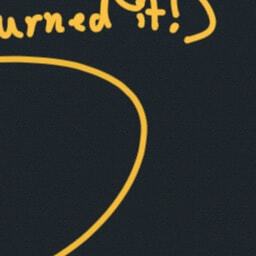 urned it!)